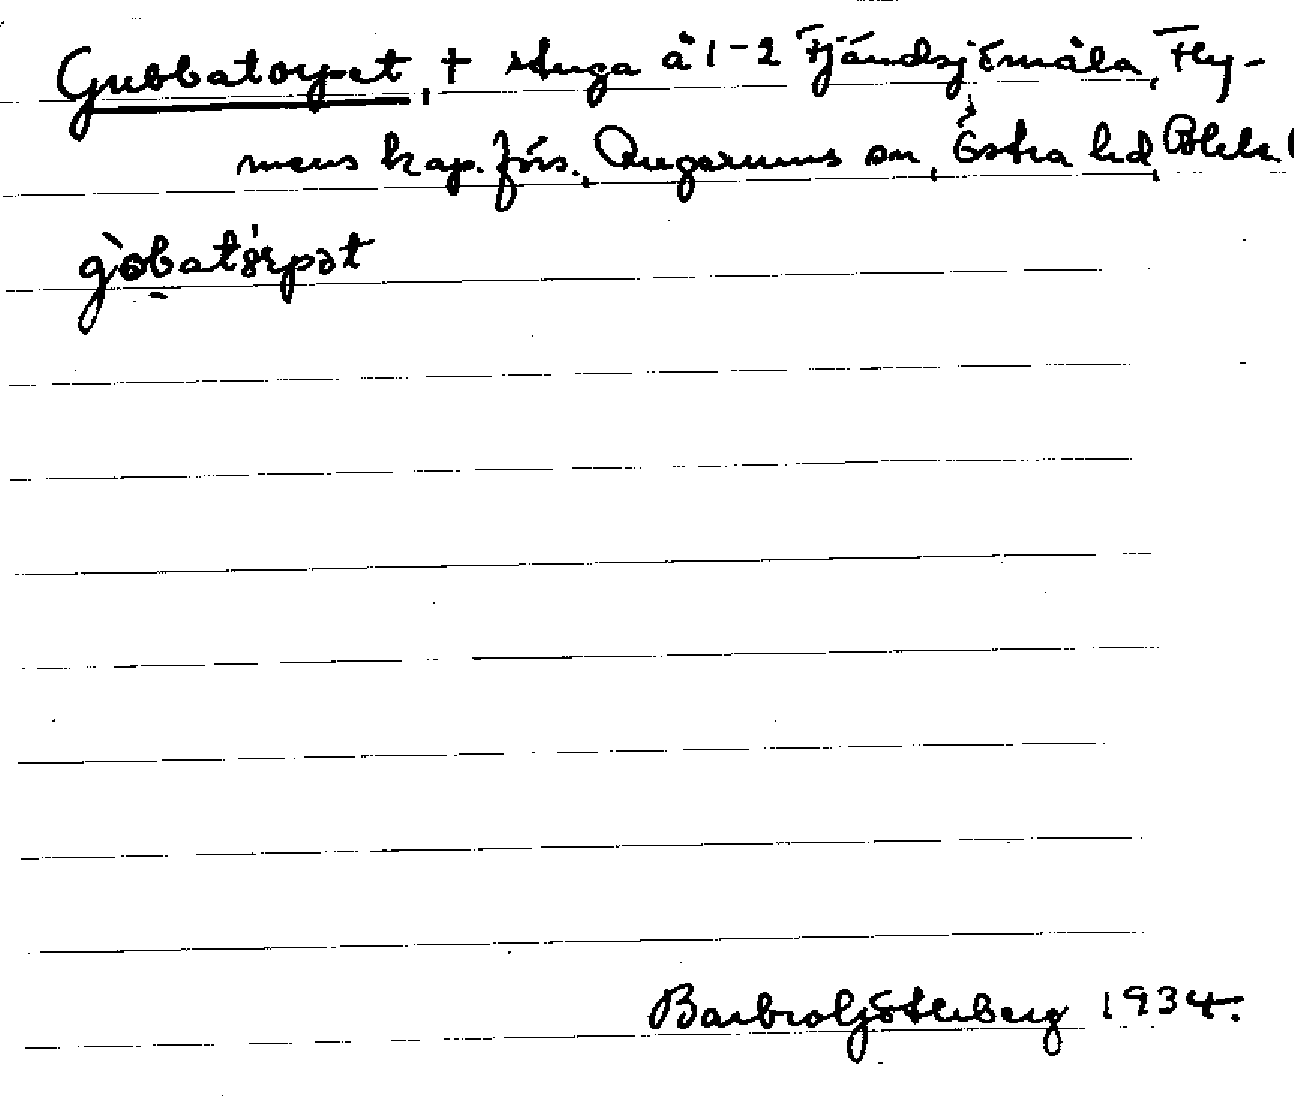 Gubbatorpet, † stuga å 1-2 Fjändsjömåla, Fly-
mens kap. förs., Augerums sn, Östra hd, Blek. l
gòbatórpət
Barbro Göthberg 1934.